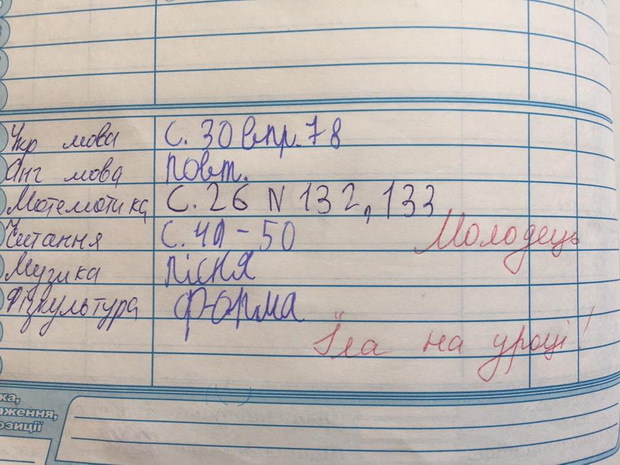 Укр мова с. 30 впр. 78
Анг мова повт.
Мотемотика с. 26 N 132, 133
Читання с. 49-50
Молодець
Музика пісня
Фізкультура форма
Їла на уроці!
ка,
аження,
озиції